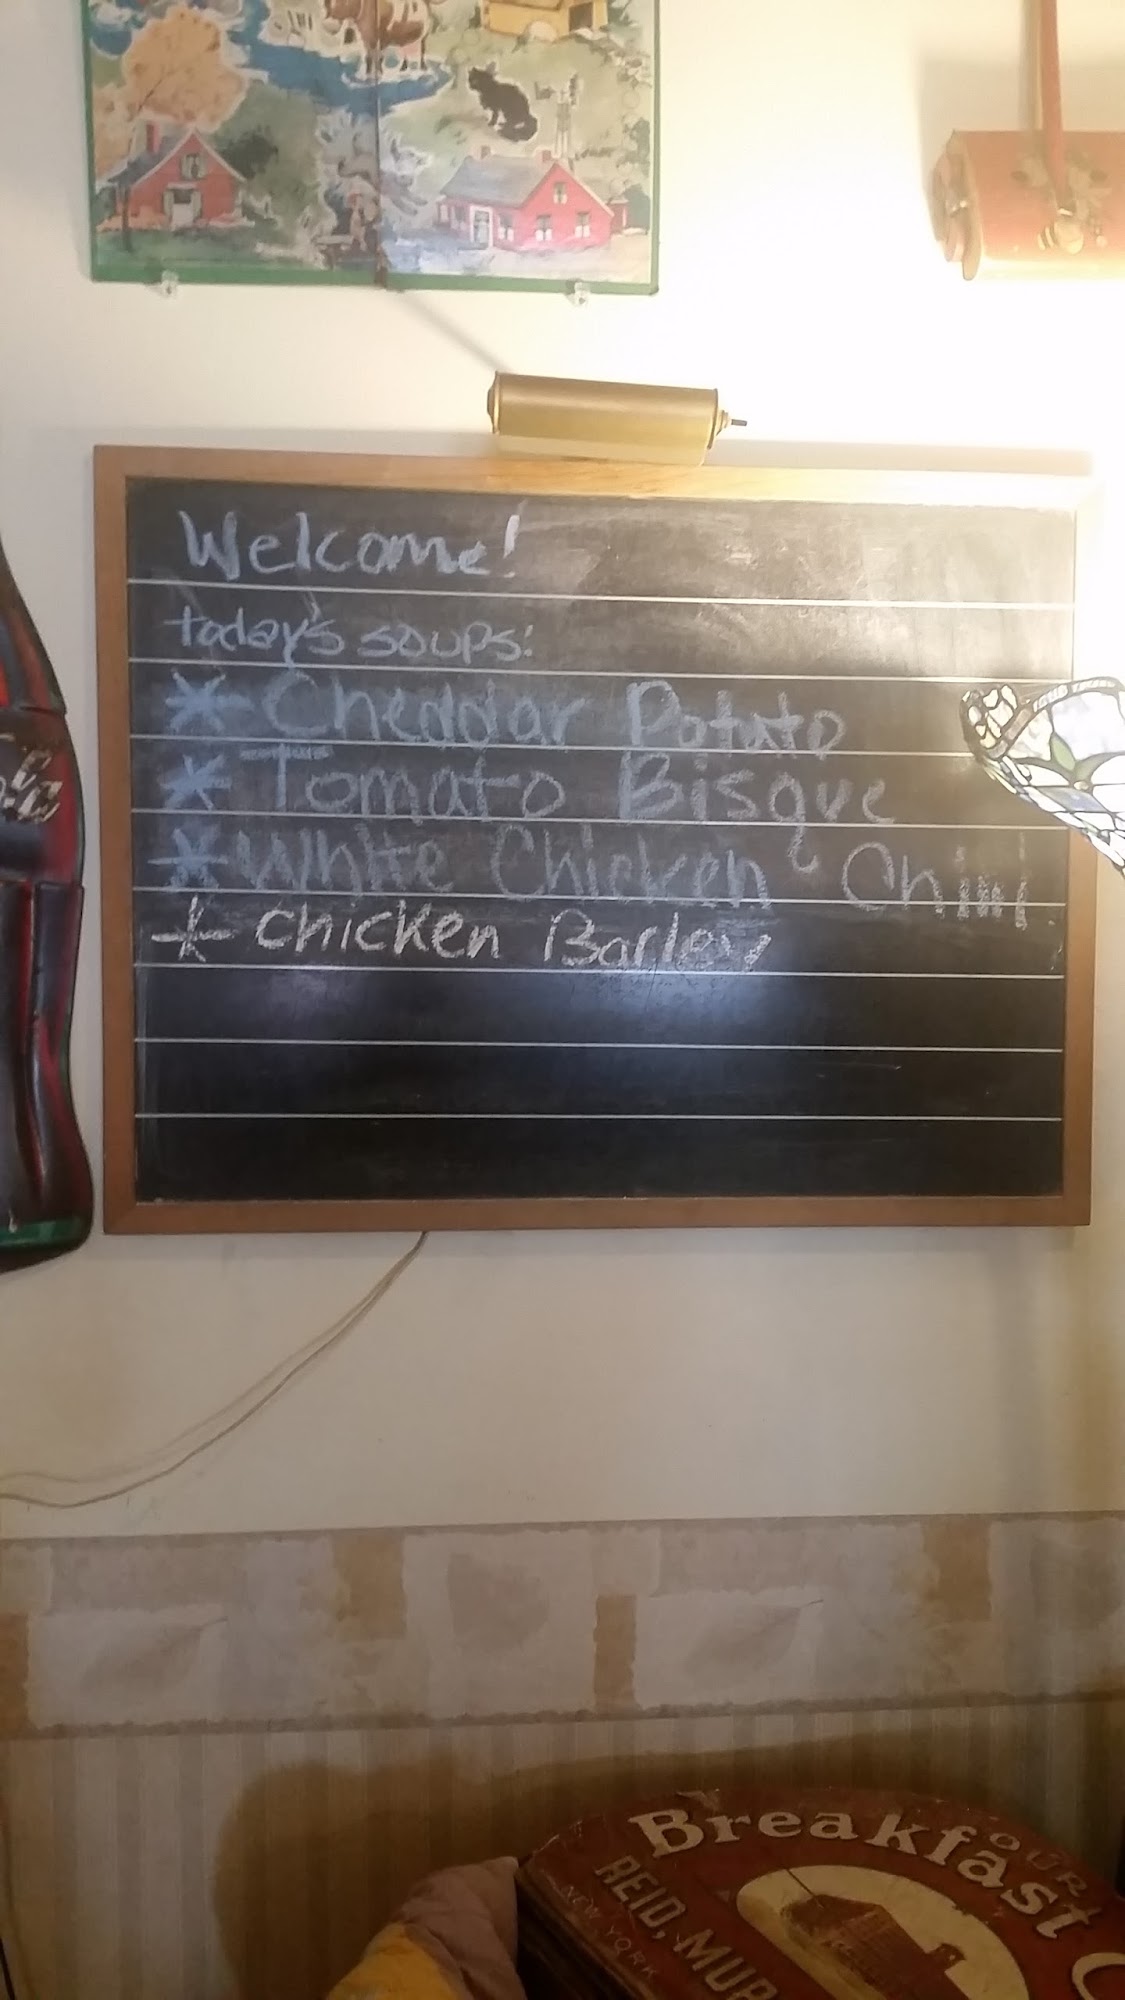 Welcome!
today's soups:
* Cheddar Potato
* Tomato Bisque
* White Chicken Chili
* Chicken Barley
OUR
Breakfast
REID, MUR
NEW YORK